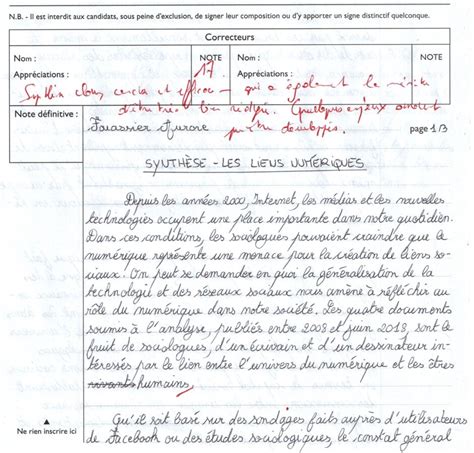 N.B. - Il est interdit aux candidats, sous peine d'exclusion, de signer leur composition ou d'y apporter un signe distinctif quelconque.
Correcteurs
Nom : NOTE Nom : NOTE
Appréciations : 17 Appréciations :
Synthèse claire, concise et efficace – qui a également le mérite
d'être très bien rédigée. Quelques enjeux auraient
Note définitive : Farassier Aurore pu être développés. page 1/3
SYNTHÈSE - LES LIENS NUMÉRIQUES
Depuis les années 2000, Internet, les médias et les nouvelles
technologies occupent une place importante dans notre quotidien.
Dans ces conditions, les sociologues pouvaient craindre que le
numérique représente une menace pour la création de liens so-
ciaux. On peut se demander en quoi la généralisation de la
technologie et des réseaux sociaux nous amène à réfléchir au
rôle du numérique dans notre société. Les quatre documents
soumis à l'analyse, publiés entre 2009 et juin 2018, sont le
fruit de sociologues, d'un écrivain et d'un dessinateur in-
téressés par le lien entre l'univers du numérique et les êtres
vivants humains.
Qu'il soit basé sur des sondages faits auprès d'utilisateurs
Ne rien inscrire ici de Facebook ou des études sociologiques, le constat général